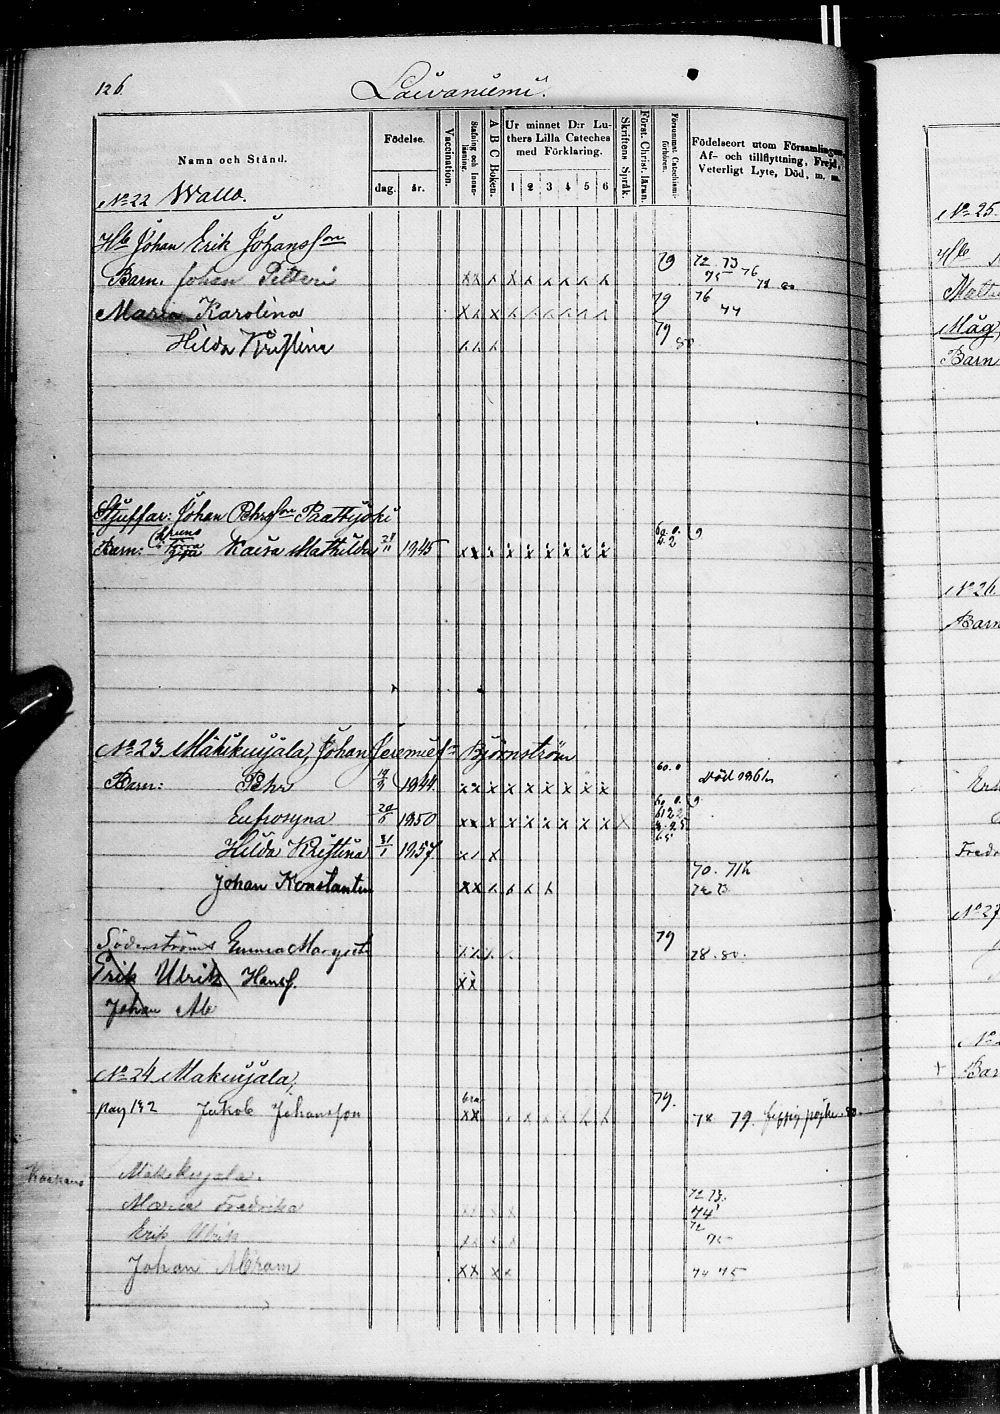 126.
Laivaniemi.
Namn och Stånd.
Födelse.
dag. år.
Vaccination.
Stafning och Innan-läsning.
A B C Boken.
Ur minnet D:r Lu-
thers Lilla Cateches
med Förklaring.
1 2 3 4 5 6
Skriftens Språk.
Först. Christ. läran.
Försummat Catechismi-förhören.
Födelseort utom Församlingen,
Af- och tillflyttning, Frejd,
Veterligt Lyte, Död, m. m.
No 22 Wallo.
Johan Erik Johansson
Barn. Johan Petteri x x x x x x x x x 79 72 73 75 76
Maria Karolina x x x 79 76 77
Hilda Kristina 79 80
Johan Pehrsson Paattijoki
Barn: Kaisa Mathilda 21/11 1845 x x x x x x x x x 60. 0. 62
No 23 Mäkikurjala, Johan Jeremiess. Björnström
Barn: Pehr 1844 x x x x x x x x x 60. 0 död 1862
Eufrosyna 20 1850 x x x x x x x x x x 65
Hilda Kristina 31/1 1857 x x 70. 71
Johan Konstantin x x 72 73
Söderström Emma Margreta 79 78. 80.
Erik Ulrik Hanss.
x x
Johan Ab
No 24 Makurjala,
pag 132 Jakob Johansson x x x x x x x 79. 78 79.
Mäkikurjala.
Maria Fredrika 72 73. 74
Erik Ulrik x x x x 72 75
Johan Abram x x x x 74 75
No 25.
Barn
No 26.
Barn
Fredr
No 27
Bar